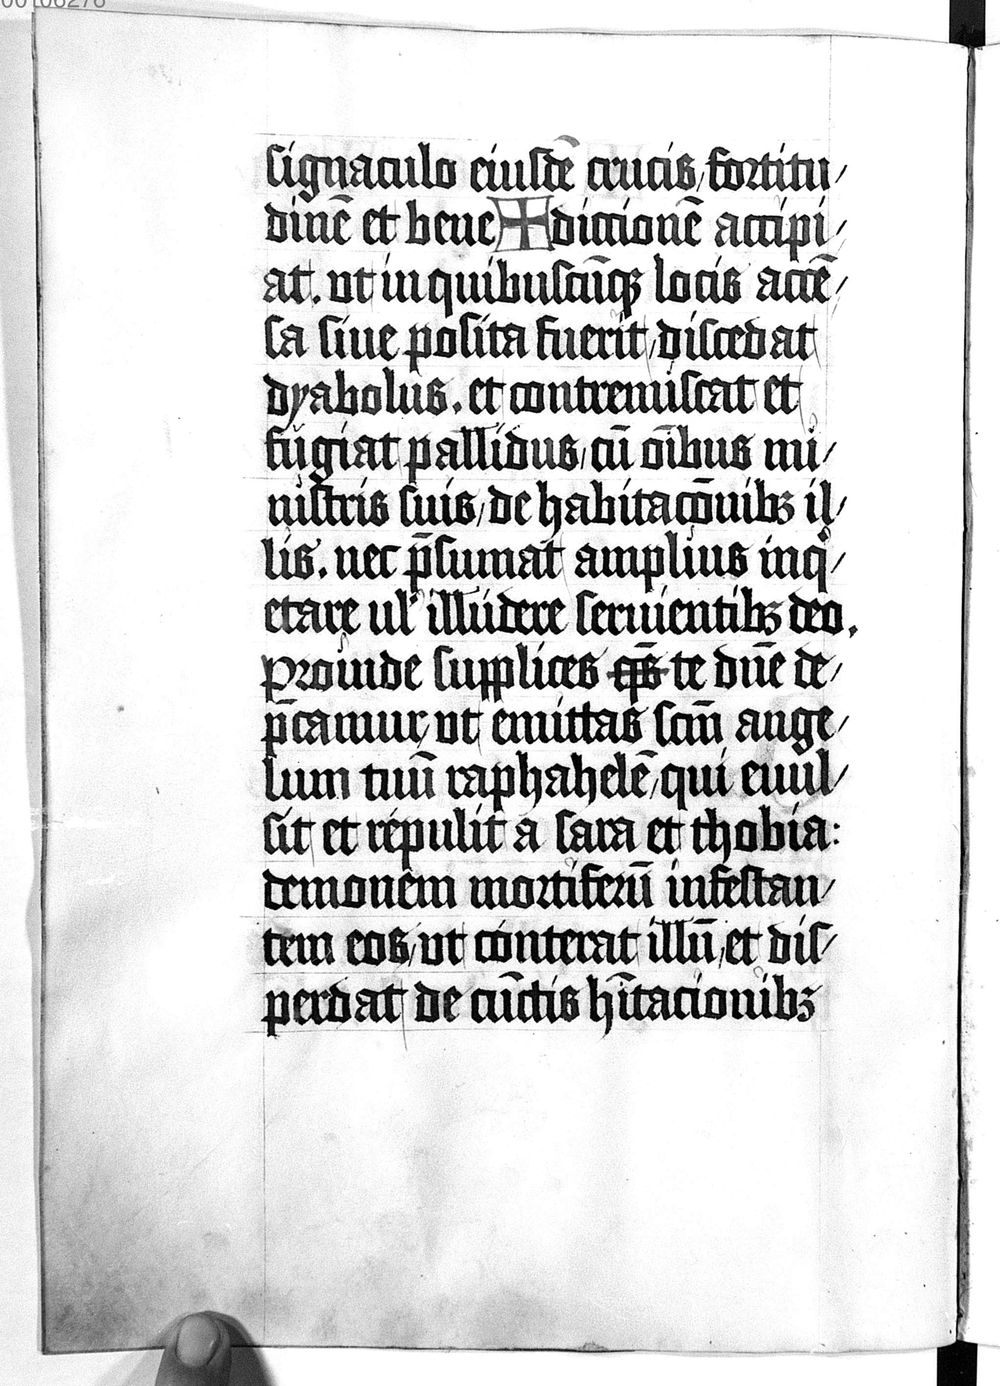 00106276
signaculo eiusdē crucis, fortitu/
dinē et bene✠dictionē accipi/
at. vt in quibuscūqꝫ locis accē/
sa siue posita fuerit, discedat
dyabolus. et contremiscat et
fugiat pallidus, cū oībus mi/
nistris suis, de habitacōnibꝫ il/
lis. nec p̄sumat amplius inqͥ/
etare ul' illudere seruientibꝫ deo.
Proinde supplices q̄s te dn̄e de/
p̄camur, vt emittas scm̄ ange/
lum tuū raphahelē, qui euul/
sit et repulit a sara et thobia:
demonem mortiferū infestan/
tem eos, vt conterat illū, et dis/
perdat de cūctis hītacionibꝫ